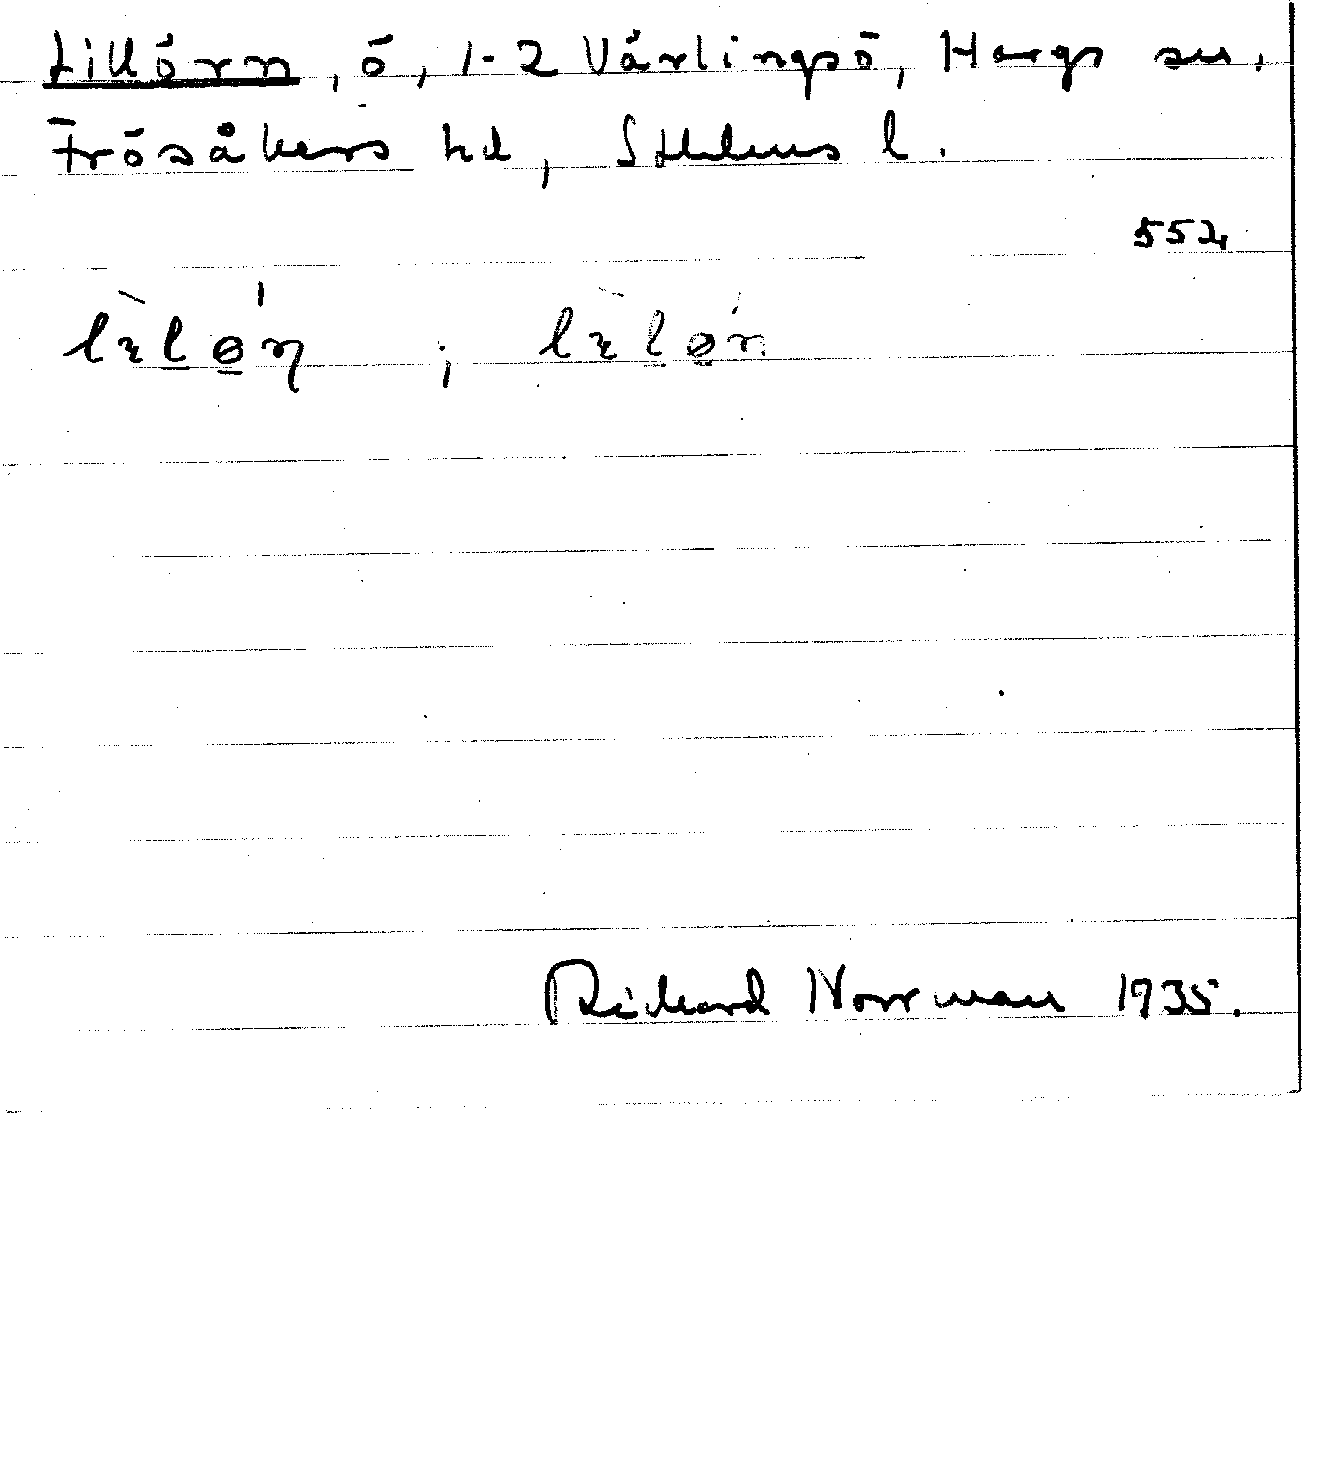 Lillörn, ö, 1-2 Värlingsö, Hargs sn,
Frösåkers hd, Sthlms l.
552
Rickard Norrman 1935.